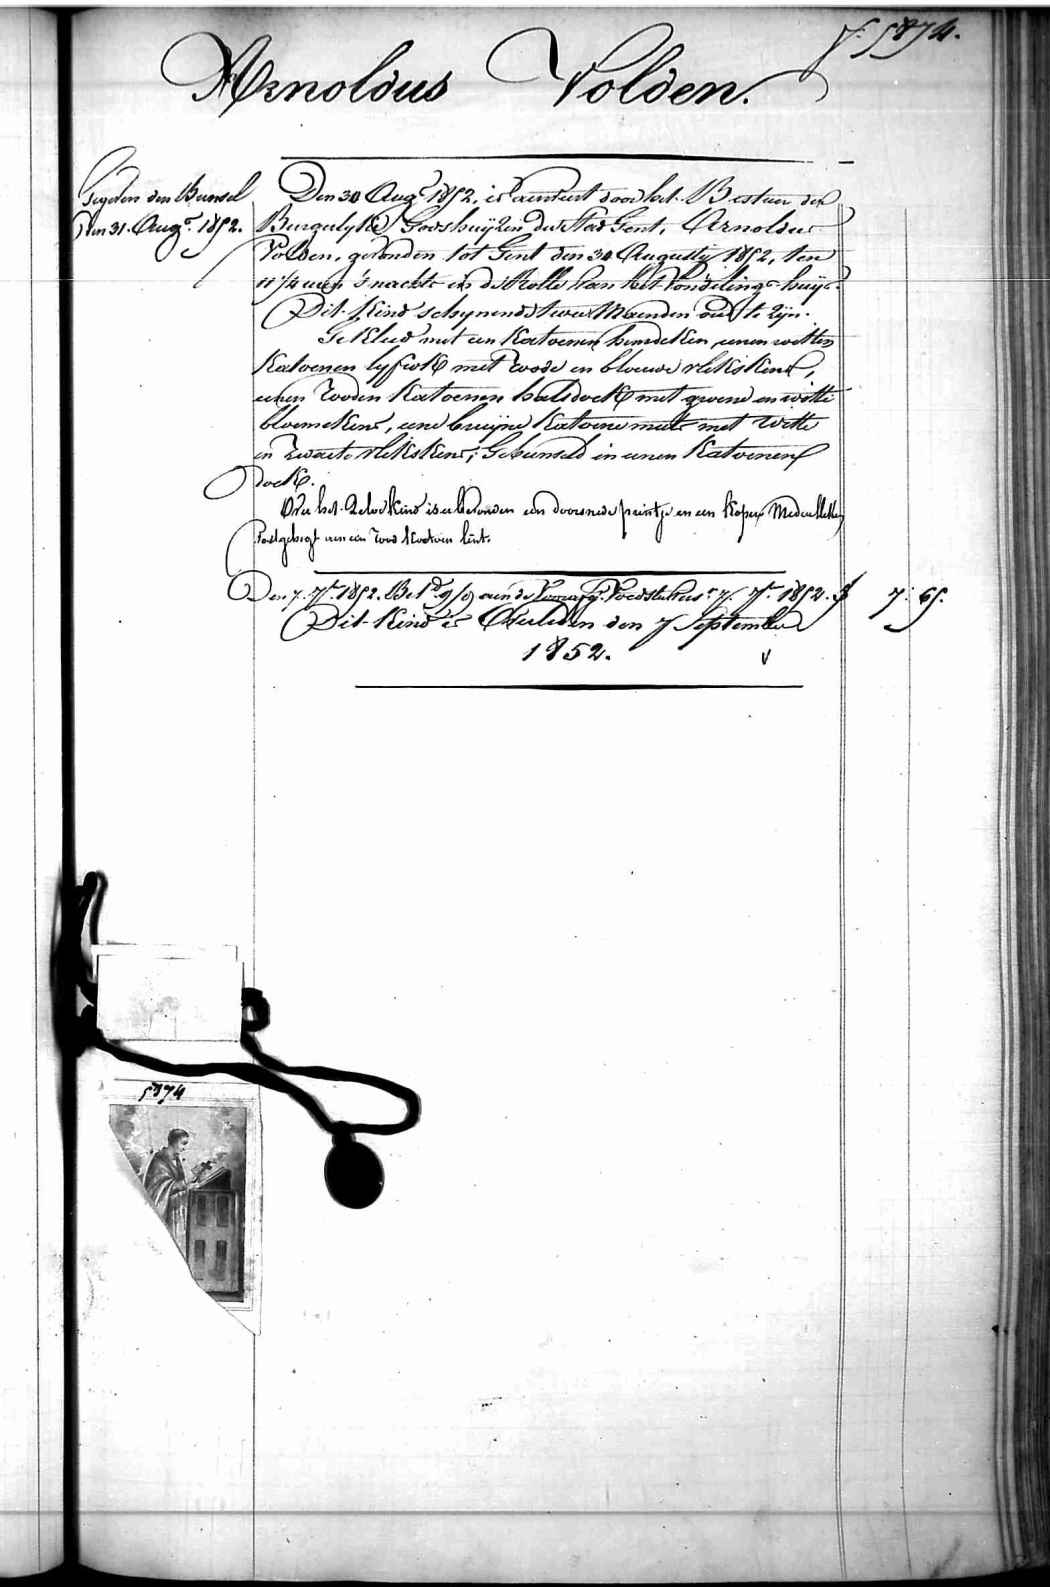 f. 5874.
Arnoldus Volden.
Gegeven den Bunsel
den 31. Augt. 1852.
Den 30 Augt. 1852, is aenveert door het Bestuer der
Burgerlyke Godshuyzen der Stad Gent, Arnoldus
Volden, gevonden tot Gent den 30 Augusty 1852, ten
11 1/4 uren 's nachts in de Rolle van het vondelings-huys.
Dit Kind schynende twee Maenden oud te zyn.
Gekleed met een Katoenen hemdeken, eenen witten
Katoenen lyfrok met roode en blauwe vlekskens,
eenen rooden Katoenen halsdoek met groene en witte
bloemekens, eene bruyne Katoene muts met witte
en zwarte vlekskens; Gebunseld in eenen Katoenen
doek.
Over het Zelve Kind is er bevonden een doorsnede printje en een Koper Medaelleken
Vastgehegt aen een rood Katoen lint.
Den 7. 7br. 1852. aen de 7br. 1852. 7. 65.
Dit Kind is Overleden den 7 September
1852.
5874